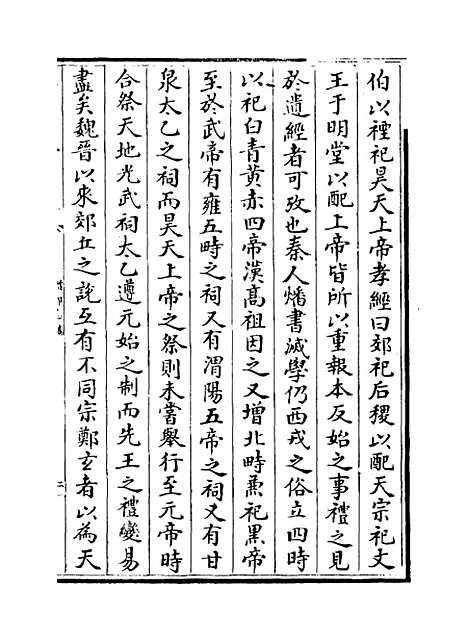 伯以禋祀昊天上帝孝經曰郊祀后稷以配天宗祀文
王于明堂以配上帝皆所以重報本反始之事禮之見
於遺經者可攷也秦人燔書滅學仍西戎之俗立四時
以祀白青黃赤四帝漢高祖因之又增北畤兼祀黑帝
至於武帝有雍五畤之祠又有渭陽五帝之祠又有甘
泉太乙之祠而昊天上帝之祭則未嘗舉行至元帝時
合祭天地光武祠太乙遵元始之制而先王之禮變易
盡矣魏晉以來郊丘之說互有不同宗鄭玄者以為天